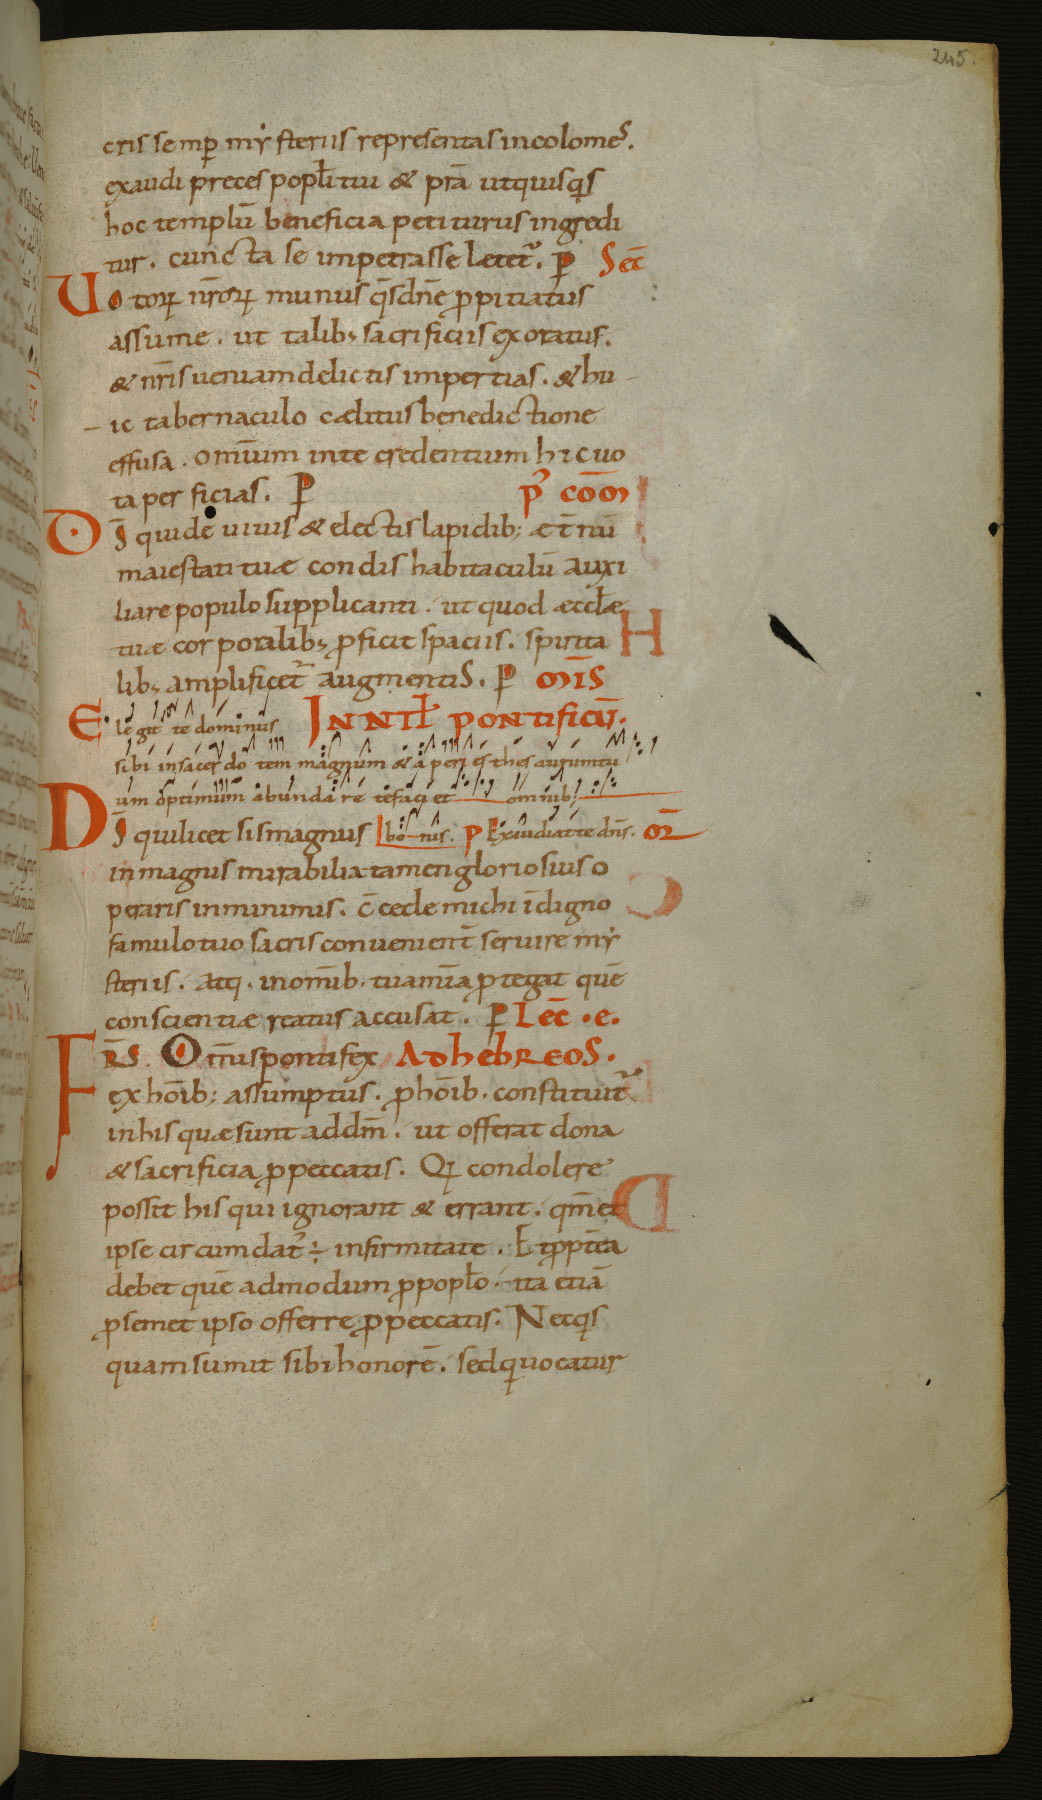 245.
cris semꝑ mẏsteriis representas incolomeS.
exaudi preces popłi tui & prā ut quisq̄s
hoc templū beneficia petiturus ingredi
tur. cuncta se impetrasse letet᷑. P Sec̄
Uotoꝝ nr̄oꝝ munus q̄s dn̄e ꝓpitiatus
assume. ut talib; sacrificiis exoratus.
& nr̄is ueniam delictis impertias. & hu-
-ic tabernaculo cælitus benedictione
effusa. omīum in te credentium hic uo
ta perficias. P p᷑ com̄
Dſ̄ qui de uiuis & electis lapidib; æt̄nū
maiestati tuæ condis habitaculū auxi
liare populo supplicanti. ut quod æccłæ
tuæ corporalib; ꝓficit spaciis. spirita
lib; amplificet᷑ augmentiS. P m̄iS
Elegit te dominus IN NAṪ PONTIFICIS.
sibi in sacerdotem magnum & aperies thesaurum su
um optimum abundare te faciet omnib;
Dſ̄ qui licet sis magnus bonis. P Exaudiat te dn̄s. OR̄
in magnis mirabilia tamen gloriosius o
peraris in minimis. c̄cede michi īdigno
famulo tuo sacris convenient̄ seruire mẏ
steriis. atq. in omīb. tua mīa ꝓtegat quē
conscientiæ reatus accusat. P Lec̄ .e.
FR̄S. Omīs pontifex Ad hebreoS.
ex hōib; assumptus. ꝓ hōib. constituit᷑
in his quæ sunt ad dm̄. ut offerat dona
& sacrificia ꝓ peccatis. Qi condolere
possit his qui ignorant & errant. qm̄ et
ipse circumdat᷑ ÷ infirmitate. Et ꝓpt̄ea
debet quē admodum ꝓ popło. ita etiā
ꝓ semet ipso offerre ꝓ peccatis. Nec q̄s
quam sumit sibi honorē. sed q̄ uocatur